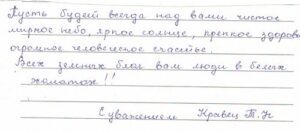 Пусть будет всегда над вами чистое
мирное небо, яркое солнце, крепкое здоровье
огромное человеческое счастье!
Всех земных благ вам люди в белых
халатах!!
С уважением Кравец Т.Н